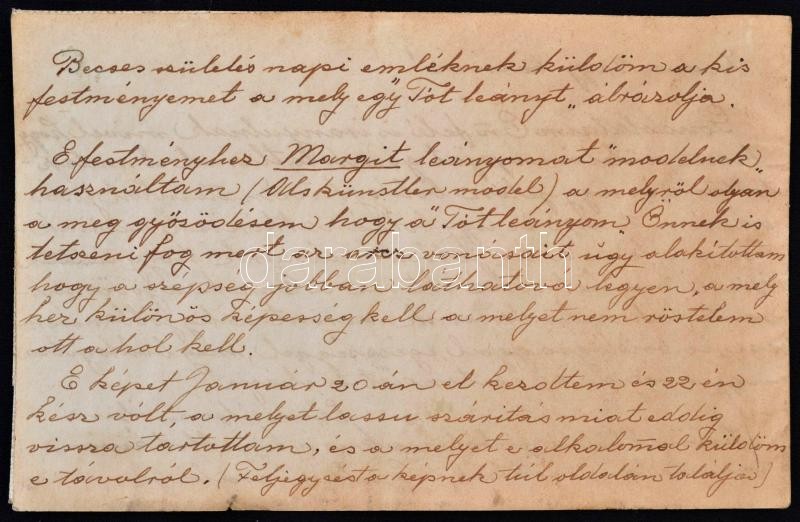 Becses születés napi emléknek küldöm a kis
festményemet a mely egy "Tót leányt" ábrázolja.
E festményhez Margit leányomat "modelnek"
használtam (Als künstler model) a melyről olyan
a meg győsödésem hogy a "Tót leányom" Önnek is
tetszeni fog mert az arcz vonásait úgy alakítottam
hogy a szépség jobban láthatóvá legyen, a mely
hez különös képesség kell a melyet nem röstelem
ott a hol kell.
E képet Január 20 án el kezdtem és 22 én
kész vólt, a melyet lassu szárítás miat eddig
vissza tartottam, és a melyet e alkalomal küldöm
e távolról. (Feljegyzést a képnek túl oldalán találja)
darabanth.com